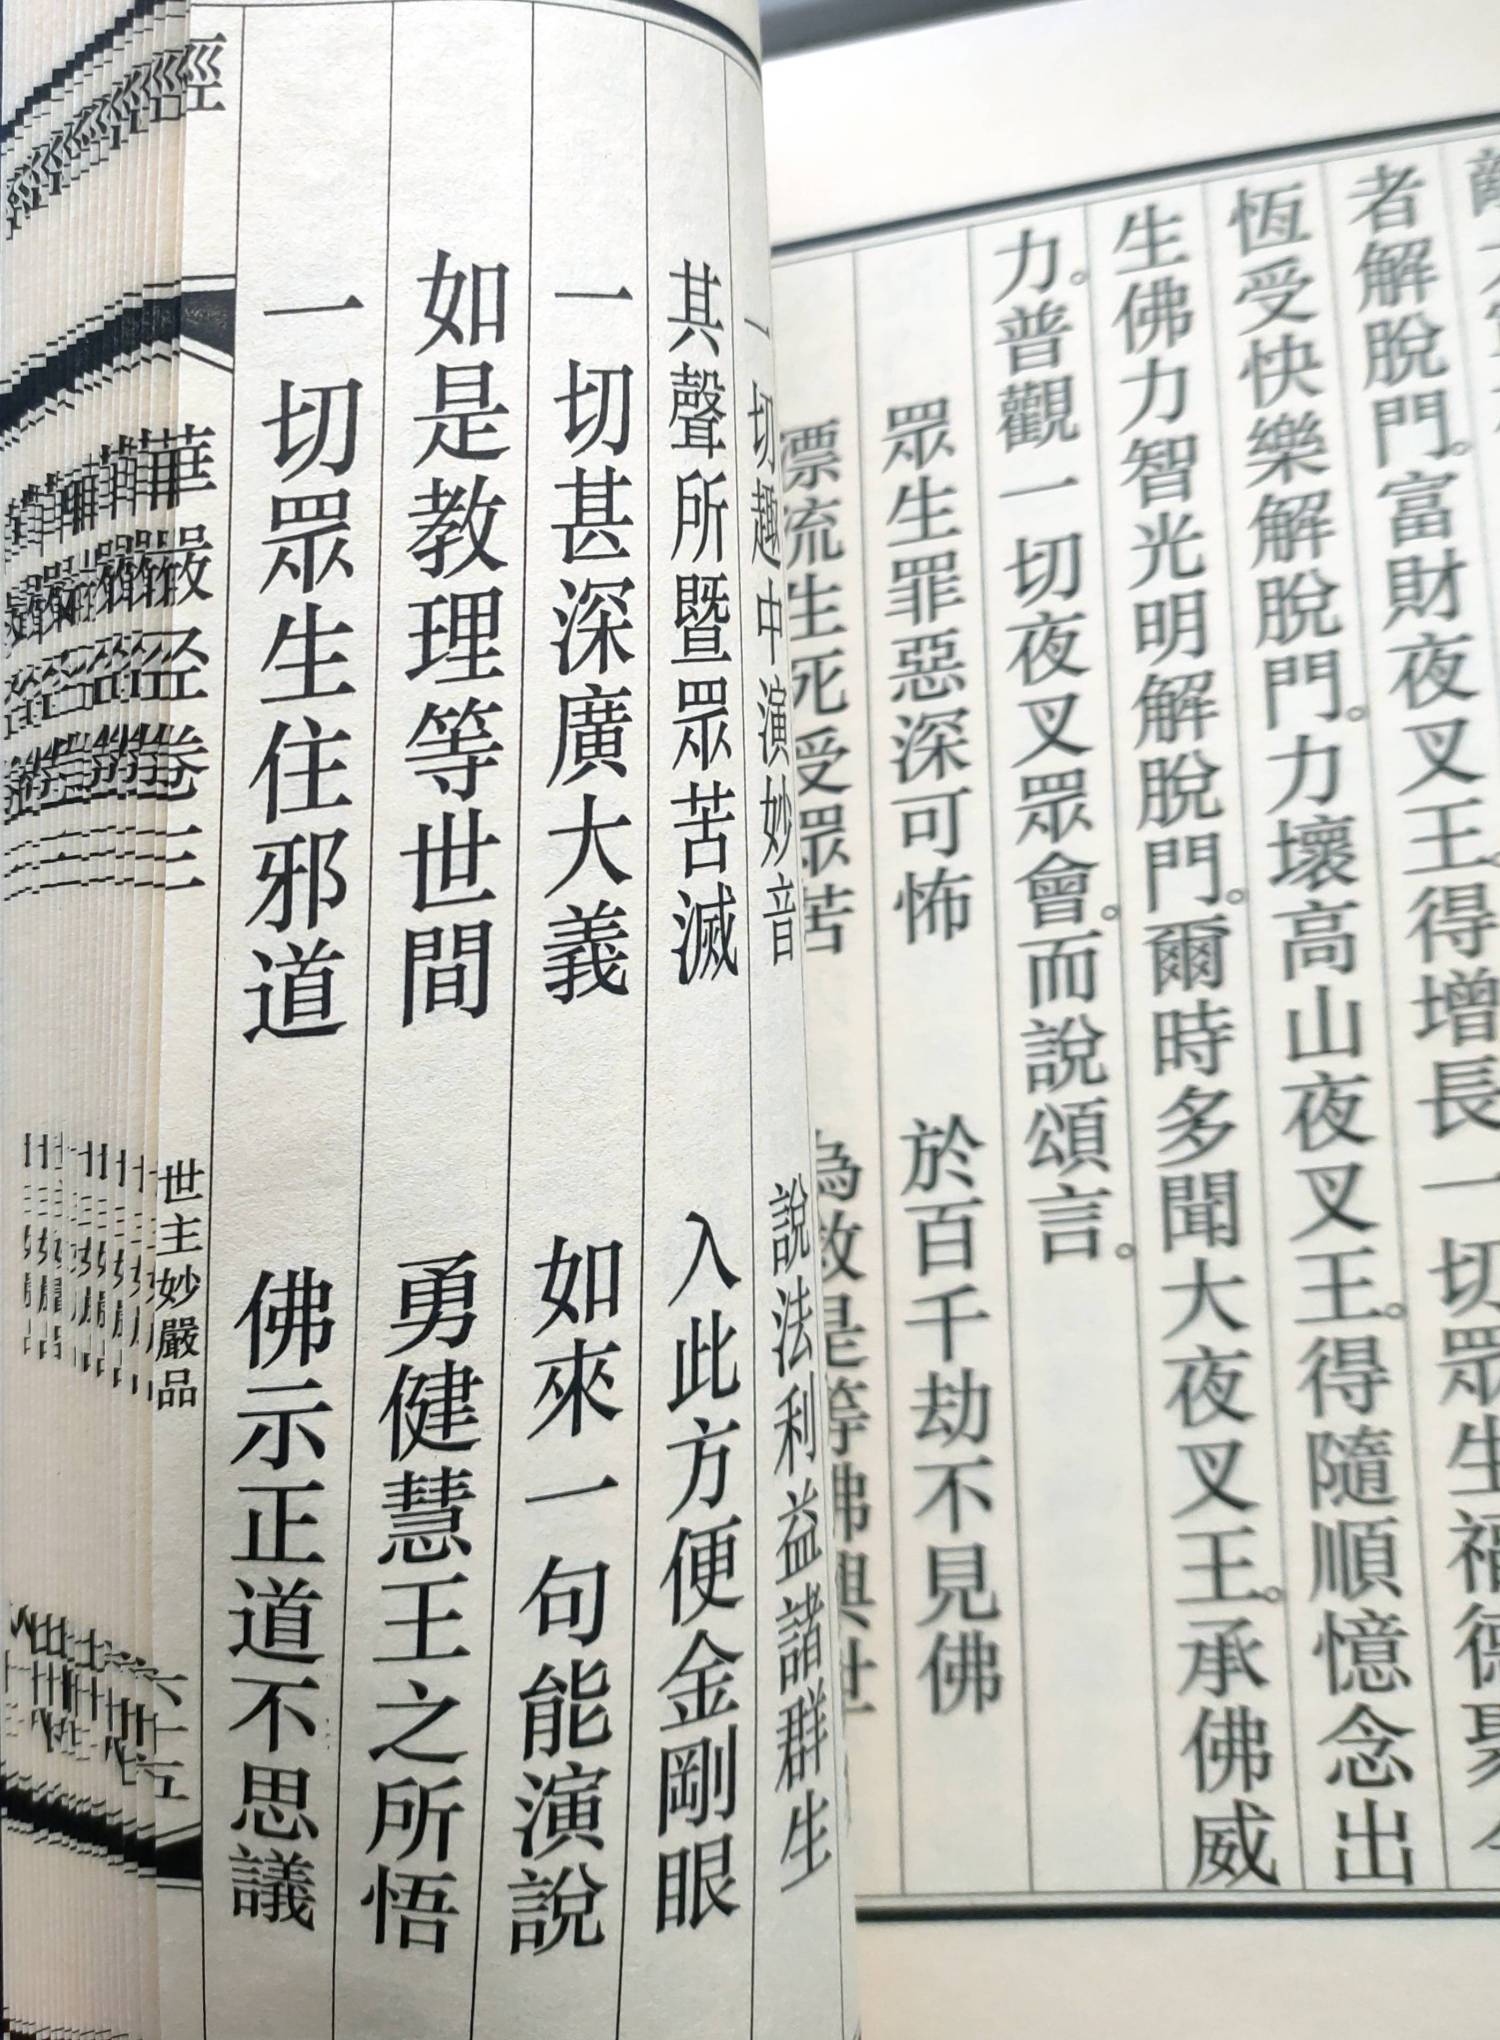 者解脫門。富財夜叉王。得增長一切眾生福德聚令
恆受快樂解脫門。力壞高山夜叉王。得隨順憶念出
生佛力智光明解脫門。爾時多聞大夜叉王。承佛威
力。普觀一切夜叉眾會。而說頌言。
眾生罪惡深可怖　於百千劫不見佛
漂流生死受眾苦　為救是等佛興世
一切趣中演妙音　說法利益諸群生
其聲所暨眾苦滅　入此方便金剛眼
一切甚深廣大義　如來一句能演說
如是教理等世間　勇健慧王之所悟
一切眾生住邪道　佛示正道不思議
經　華嚴經卷三　世主妙嚴品　六十五